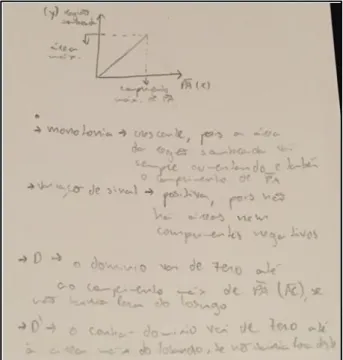 (y) região
sombreada
área
máx.
PA (x)
comprimento
máx. de PA
→ monotonia → crescente, pois a área
da região sombreada vai
sempre aumentando e também
o comprimento de PA
→ variação de sinal → positiva, pois não
há áreas nem
comprimentos negativos
→ D → o domínio vai de zero até
ao comprimento máx de PA (AC), se
não havia fora do losango
→ D' → o contra domínio vai de zero até
à área máx do losango, se não havia fora